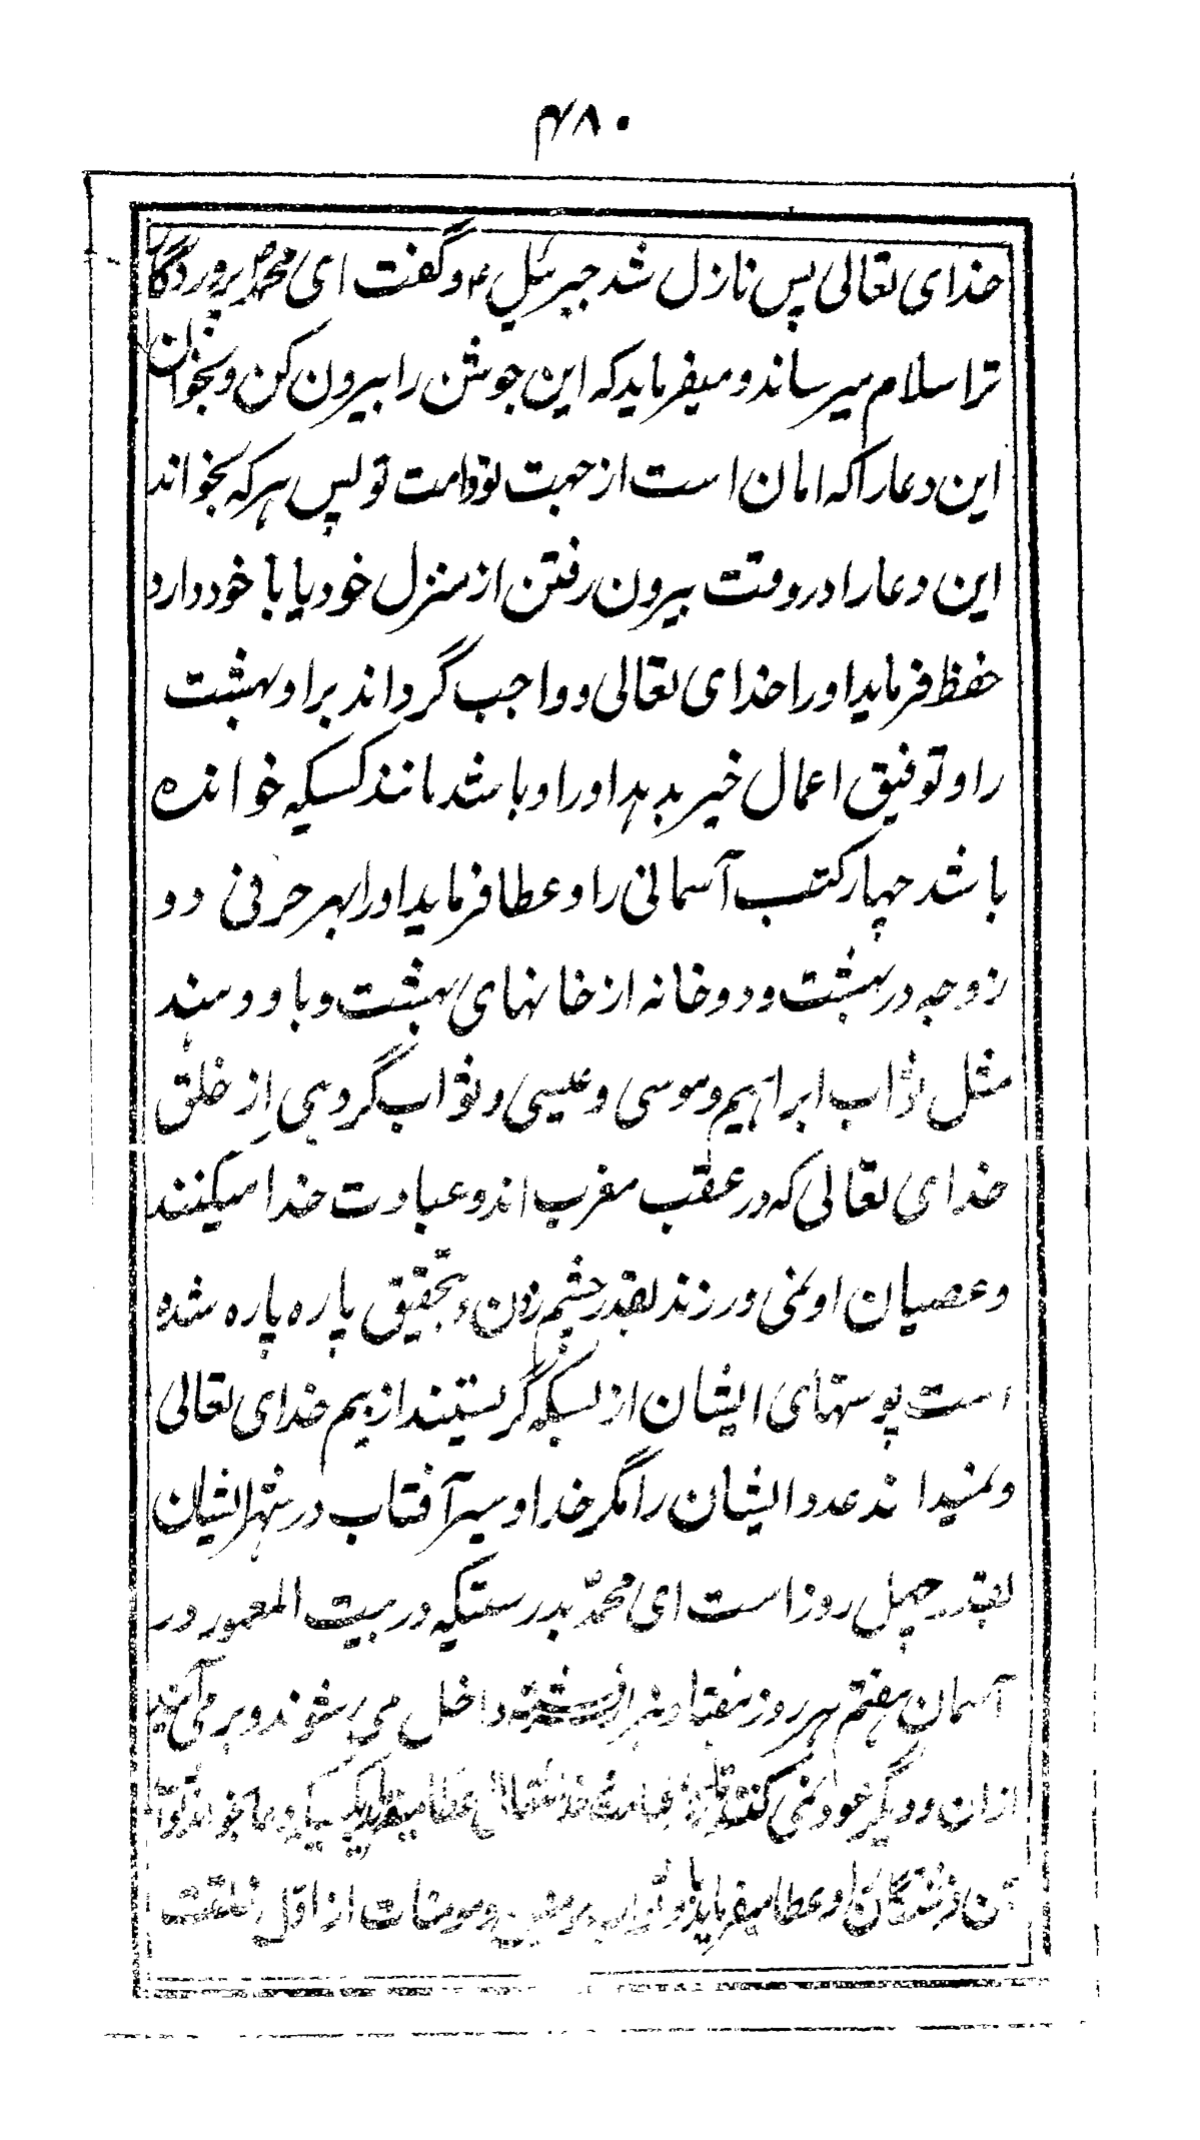 ۴۸۰
خدای تعالی پس نازل شد جبرئیل ۴ و گفت ای محمد ص پروردگار
ترا سلام میرساند و میفرماید که این جوشن را بیرون کن و بخوان
این دعا را که امان است از جهت تو و امت تو پس هر که بخواند
این دعا را در وقت بیرون رفتن از منزل خود یا با خود دارد
حفظ فرماید او را خدای تعالی و واجب گرداند بر او بهشت
را و توفیق اعمال خیر بدهد او را و باشد مانند کسیکه خوانده
باشد چهار کتب آسمانی را و عطا فرماید او را بهر حرفی دو
زوجه در بهشت و دو خانه از خانهای بهشت و باو دهند
مثل ثواب ابراهیم و موسی و عیسی و ثواب گروهی از خلق
خدای تعالی که در عقب مغرب اند و عبادت خدا میکنند
و عصیان او نمی ورزند بقدر چشم زدن و بتحقیق پاره پاره شده
است پوستهای ایشان از بسکه گریستند از بیم خدای تعالی
و نمیداند عدد ایشان را مگر خدا و سیر آفتاب در شهر ایشان
بقدر چهل روز است ای محمّد بدرستیکه در بیت المعمور در
آسمان هفتم هر روز هفتاد هزار فرشته داخل می شوند و بر می آیند
از ان و دیگر عود نمی کنند تا قیامت
آن فرشتگان او عطا میفرماید و ثواب مومنین و مومنات از اوّل خلقت